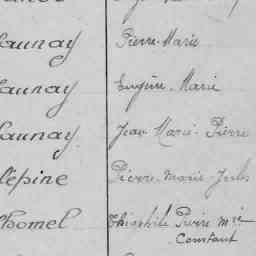 Launay Pierre Marie
Launay Eugène Marie
Launay Jean Marie Pierre
Lépine Pierre Marie Jules
Lhomel Théophile Pierre Mie
Constant